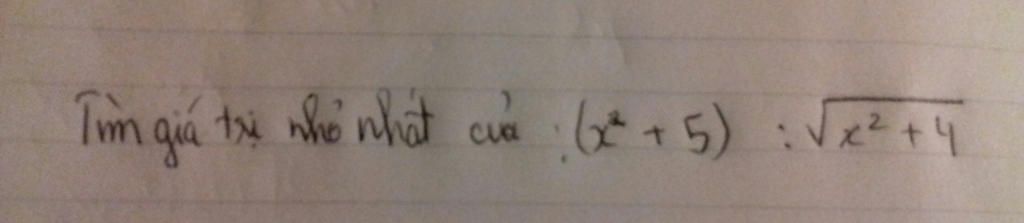 Tìm giá trị nhỏ nhất của : (x² + 5) : √(x² + 4)